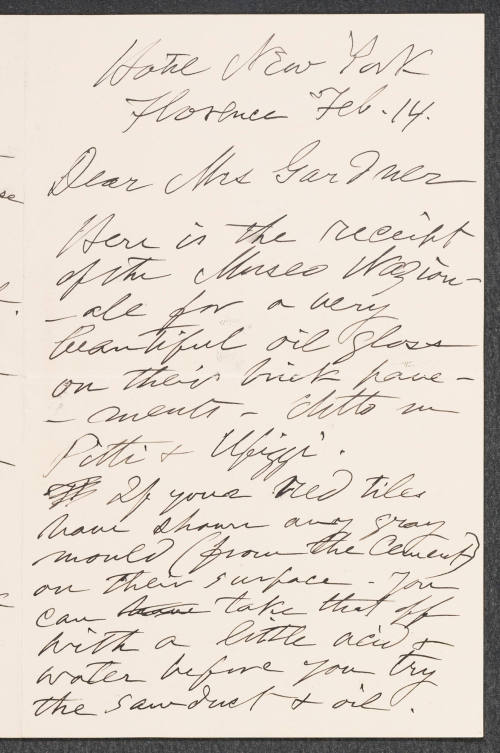 Hotel New York
Florence Feb. 14.
Dear Mrs Gardner
Here is the receipt
of the Museo Nazion-
-ale for a very
beautiful oil gloss
on their brick pave-
-ments - ditto in
Pitti & Uffizzi.
If your red tiles
have shown any gray
mould (from the cement)
on their surface - You
can have take that off
with a little acid &
water before you try
the sawdust & oil.